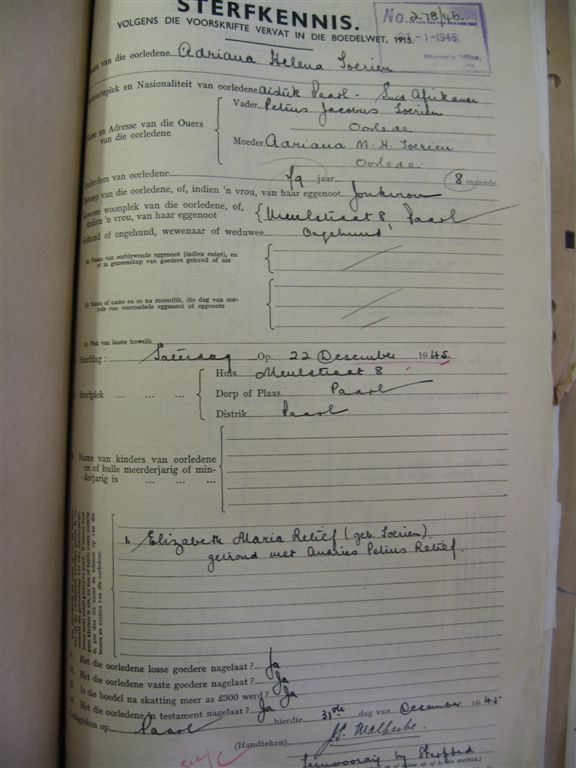 STERFKENNIS.
VOLGENS DIE VOORSKRIFTE VERVAT IN DIE BOEDELWET, 1913.
No. 278/46.
-1-1946
van die oorledene Adriana Helena Loerien
en Nasionaliteit van oorledene Paarl - Suid Afrikaner
en Adresse van die Ouers van die oorledene
Vader Petrus Jacobus Loerien
Oorlede
Moeder Adriana M. H. Loerien
Oorlede
van oorledene 79 jaar 8 maande
van die oorledene, of, indien 'n vrou, van haar eggenoot Jonkvrou
woonplek van die oorledene, of, indien 'n vrou, van haar eggenoot Meulstraat 8 Paarl
of ongehuud, wewenaar of weduwee Ongehuud
(a) Naam van oorblywende eggenoot (indien enige), en of in gemeenskap van goedere gehuud of nie
(b) Naam of name en so na moontlik, die dag van oorlyde van vooroorlede eggenoot of eggenote
(c) Plek van laaste huwelik
Sterfdag: Saterdag Op 22 Desember 1945
Sterfplek ... ... ...
Huis Meulstraat 8
Dorp of Plaas Paarl
Distrik Paarl
Name van kinders van oorledene
en of hulle meerderjarig of minderjarig is ... ... ...
1. Elizabeth Maria Retief (geb. Loerien)
getroud met Andries Petrus Retief.
Het die oorledene losse goedere nagelaat? Ja
Het die oorledene vaste goedere nagelaat? Ja
Is die boedel na skatting meer as £300 werd? Ja
Het die oorledene 'n testament nagelaat? Ja
op Paarl hierdie 31ste dag van Desember 1945
(Handteken) Malherbe
Teenwoordig by Sterfbed